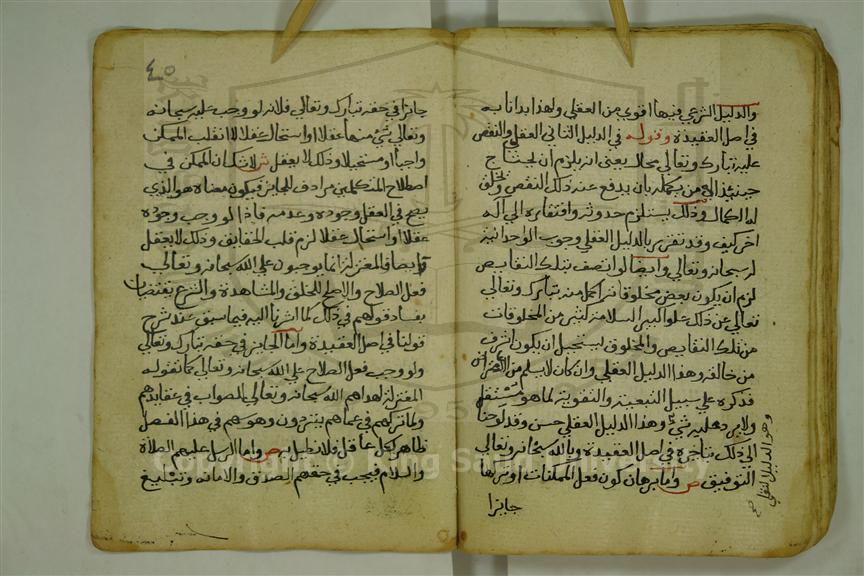 والدليل الشرعي فيها اقوي من العقلي ولهذا بدانا به
في اصل العقيدة وقوله في الدليل الثاني العقلي والنقص
عليه تبارك وتعالي محال يعني انه يلزم ان يحتاج
حينئذ الي من يكمله بان يدفع عنه ذلك النقص ويخلق
له الكمال وذلك يستلزم حدوثه وافتقاره الي اله
اخر كيف وقد تقرر بالدليل العقلي وجوب الوحدانية
له سبحانه وتعالي وايضا لو اتصف بتلك النقايص
لزم ان يكون بعض مخلوقاته اكمل منه تبارك وتعالي
تعالي عن ذلك علوا كبيرا لسلامة كثير من المخلوقات
من تلك النقايص والمخلوق يستحيل ان يكون اشرف
من خالقه وهذا الدليل العقلي وان كان لا يسلم من الاعتراض
فذكره علي سبيل التبعية والتقوية لما هو مستقل
ولا يرد عليه شيء وهذا الدليل العقلي حسن وقد لوحنا
الي ذلك بتاخره في اصل العقيدة وبالله سبحانه وتعالي
التوفيق ص واما برهان كون فعل الممكنات او تركها
جايزا
وهو الدليل النقلي صح
٤٥
جائزا في حقه تبارك وتعالي فلانه لو وجب عليه سبحانه
وتعالي شيء منها عقلا او استحال عقلا لانقلب الممكن
واجبا او مستحيلا وذلك لا يعقل ش لا شك ان الممكن في
اصطلاح المتكلمين مرادف للجايز فيكون معناه هو الذي
يصح في العقل وجوده وعدمه فاذا لو وجب وجوده
عقلا او استحال عقلا لزم قلب الحقايق وذلك لا يعقل
وايضا فالمعتزلة انما يوجبون علي الله سبحانه وتعالي
فعل الصلاح والاصلح للخلق والمشاهدة والشرع يقتضيان
بفساد قولهم في ذلك كما اشرنا اليه فيما سبق عند شرح
قولنا في اصل العقيدة واما الجايز في حقه تبارك وتعالي
ولو وجب فعل الصلاح علي الله سبحانه وتعالي كما تقوله
المعتزلة لهداهم الله سبحانه وتعالي للصواب في عقايدهم
ولما تركهم في عماهم يترددون وهوسهم في هذا الفصل
ظاهر لكل عاقل فلا نطيل به ص واما الرسل عليهم الصلاة
والسلام فيجب في حقهم الصدق والامانه وتبليغ